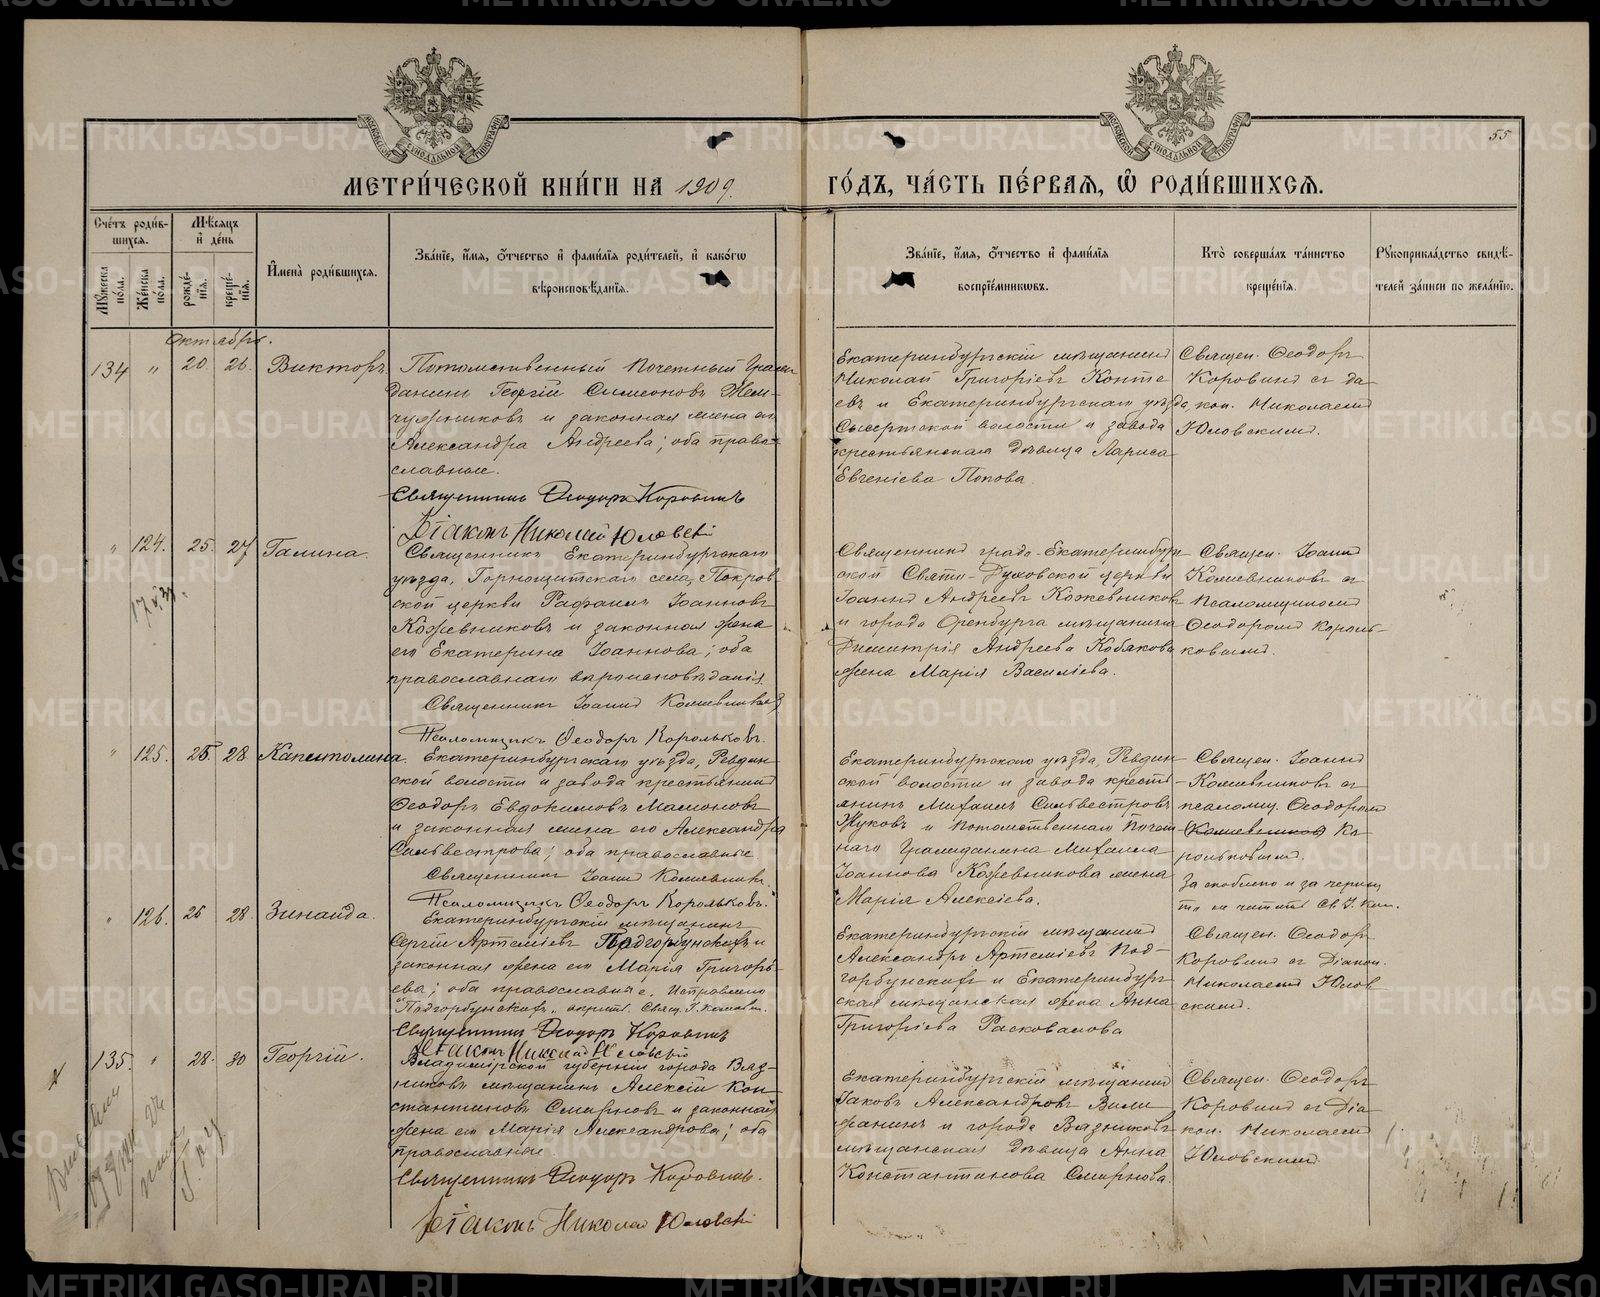 МЕТРИ́ЧЕСКОЙ КНИ́ГИ НА 1909.
ГО́ДЪ, ЧА́СТЬ ПЕ́РВАѦ, Ѡ҆ РОДИ́ВШИХСѦ.
55
МОСКОВСКОЙ СѴНОДАЛЬНОЙ ТИПОГРАФІИ
МОСКОВСКОЙ СѴНОДАЛЬНОЙ ТИПОГРАФІИ
Сче́тъ роди́вшихсѧ.
Мꙋ́жеска по́ла.
Же́нска по́ла.
Мѣ́сѧцъ и҆ де́нь
рожде́нїѧ.
креще́нїѧ.
И҆мена̀ роди́вшихсѧ.
Зва́нїе, и҆́мѧ, ѻ҆́тчество и҆ фами́лїѧ роди́телей, и҆ како́гѡ
вѣроисповѣ́данїѧ.
Зва́нїе, и҆́мѧ, ѻ҆́тчество и҆ фами́лїѧ
воспрїе́мникѡвъ.
Кто̀ соверша́лъ та́инство
креще́нїѧ.
Рꙋкоприкла́дство свидѣ́-
телей за́писи по жела́нїю.
Октябрь.
134 " 20. 26. Викторъ.
Потомственный Почетный Граж
данинъ Георгій Симеоновъ Жем-
чужниковъ и законная жена его
Александра Андреева; оба право-
славные.
Священникъ Ѳеодоръ Коровинъ
Діаконъ Николай Юловскій
Екатеринбургскій мѣщанинъ
Николай Григоріевъ Копте
евъ и Екатеринбургскаго уѣзда,
Сысертской волости и завода
крестьянская дѣвица Лариса
Евгеніева Попова.
Священ. Ѳеодоръ
Коровинъ съ діа
кон. Николаемъ
Юловскимъ.
" 124. 25. 27 Галина.
Священникъ Екатеринбургскаго
уѣзда, Горнощитскаго села, Покров
ской церкви Рафаилъ Іоанновъ
Кожевниковъ и законная жена
его Екатерина Іоаннова; оба
православнаго вѣроисповѣданія.
Священникъ Іоаннъ Кожевниковъ
Псаломщикъ Ѳеодоръ Корольковъ.
Священникъ града Екатеринбург
ской Свято-Духовской церкви
Іоаннъ Андреевъ Кожевниковъ
и города Оренбурга мѣщанина
Димитрія Андреева Кобякова
жена Марія Василіева.
Священ. Іоаннъ
Кожевниковъ съ
псаломщикомъ
Ѳеодоромъ Король-
ковымъ.
" 125. 25. 28 Капитолина.
Екатеринбургскаго уѣзда, Ревдин
ской волости и завода крестьянинъ
Ѳеодоръ Евдокимовъ Мамоновъ
и законная жена его Александра
Сильвестрова; оба православные.
Священникъ Іоаннъ Кожевник.
Псаломщикъ Ѳеодоръ Корольковъ.
Екатеринбургскаго уѣзда, Ревдин
ской волости и завода кресть
янинъ Михаилъ Сильвестровъ
Жуковъ и потомственнаго Почет
наго Гражданина Михаила
Іоаннова Кожевникова жена
Марія Алексіева.
Священ. Іоаннъ
Кожевниковъ съ
псаломщ. Ѳеодоромъ
Кожевников Ко-
рольковымъ.
" 126. 26 28. Зинаида.
Екатеринбургскій мѣщанинъ
Сергій Артеміевъ Подгорбунскихъ и
законная жена его Марія Григорь-
ева; оба православные. Исправлено
"Подгорбунскихъ"
Священникъ Ѳеодоръ Коровинъ
Діаконъ Николай Юловскій
Екатеринбургскій мѣщанинъ
Александръ Артеміевъ Под-
горбунскихъ и Екатеринбург
ская мѣщанская жена Анна
Григоріева Расковалова
Священ. Ѳеодоръ
Коровинъ съ діакон.
Николаемъ Юлов
скимъ.
135. " 28. 30 Георгій.
Владимірской губерніи города Вяз-
никовъ мѣщанинъ Алексій Кон-
стантиновъ Смирновъ и законная
жена его Марія Александрова; оба
православные
Священникъ Ѳеодоръ Коровинъ.
Діаконъ Николай Юловскій
Екатеринбургскій мѣщанинъ
Іаковъ Александровъ Вили
фанинъ и города Вязниковъ
мѣщанская дѣвица Анна
Константинова Смирнова.
Священ. Ѳеодоръ
Коровинъ съ діа
кон. Николаемъ
Юловскимъ.
METRIKI.GASO-URAL.RU